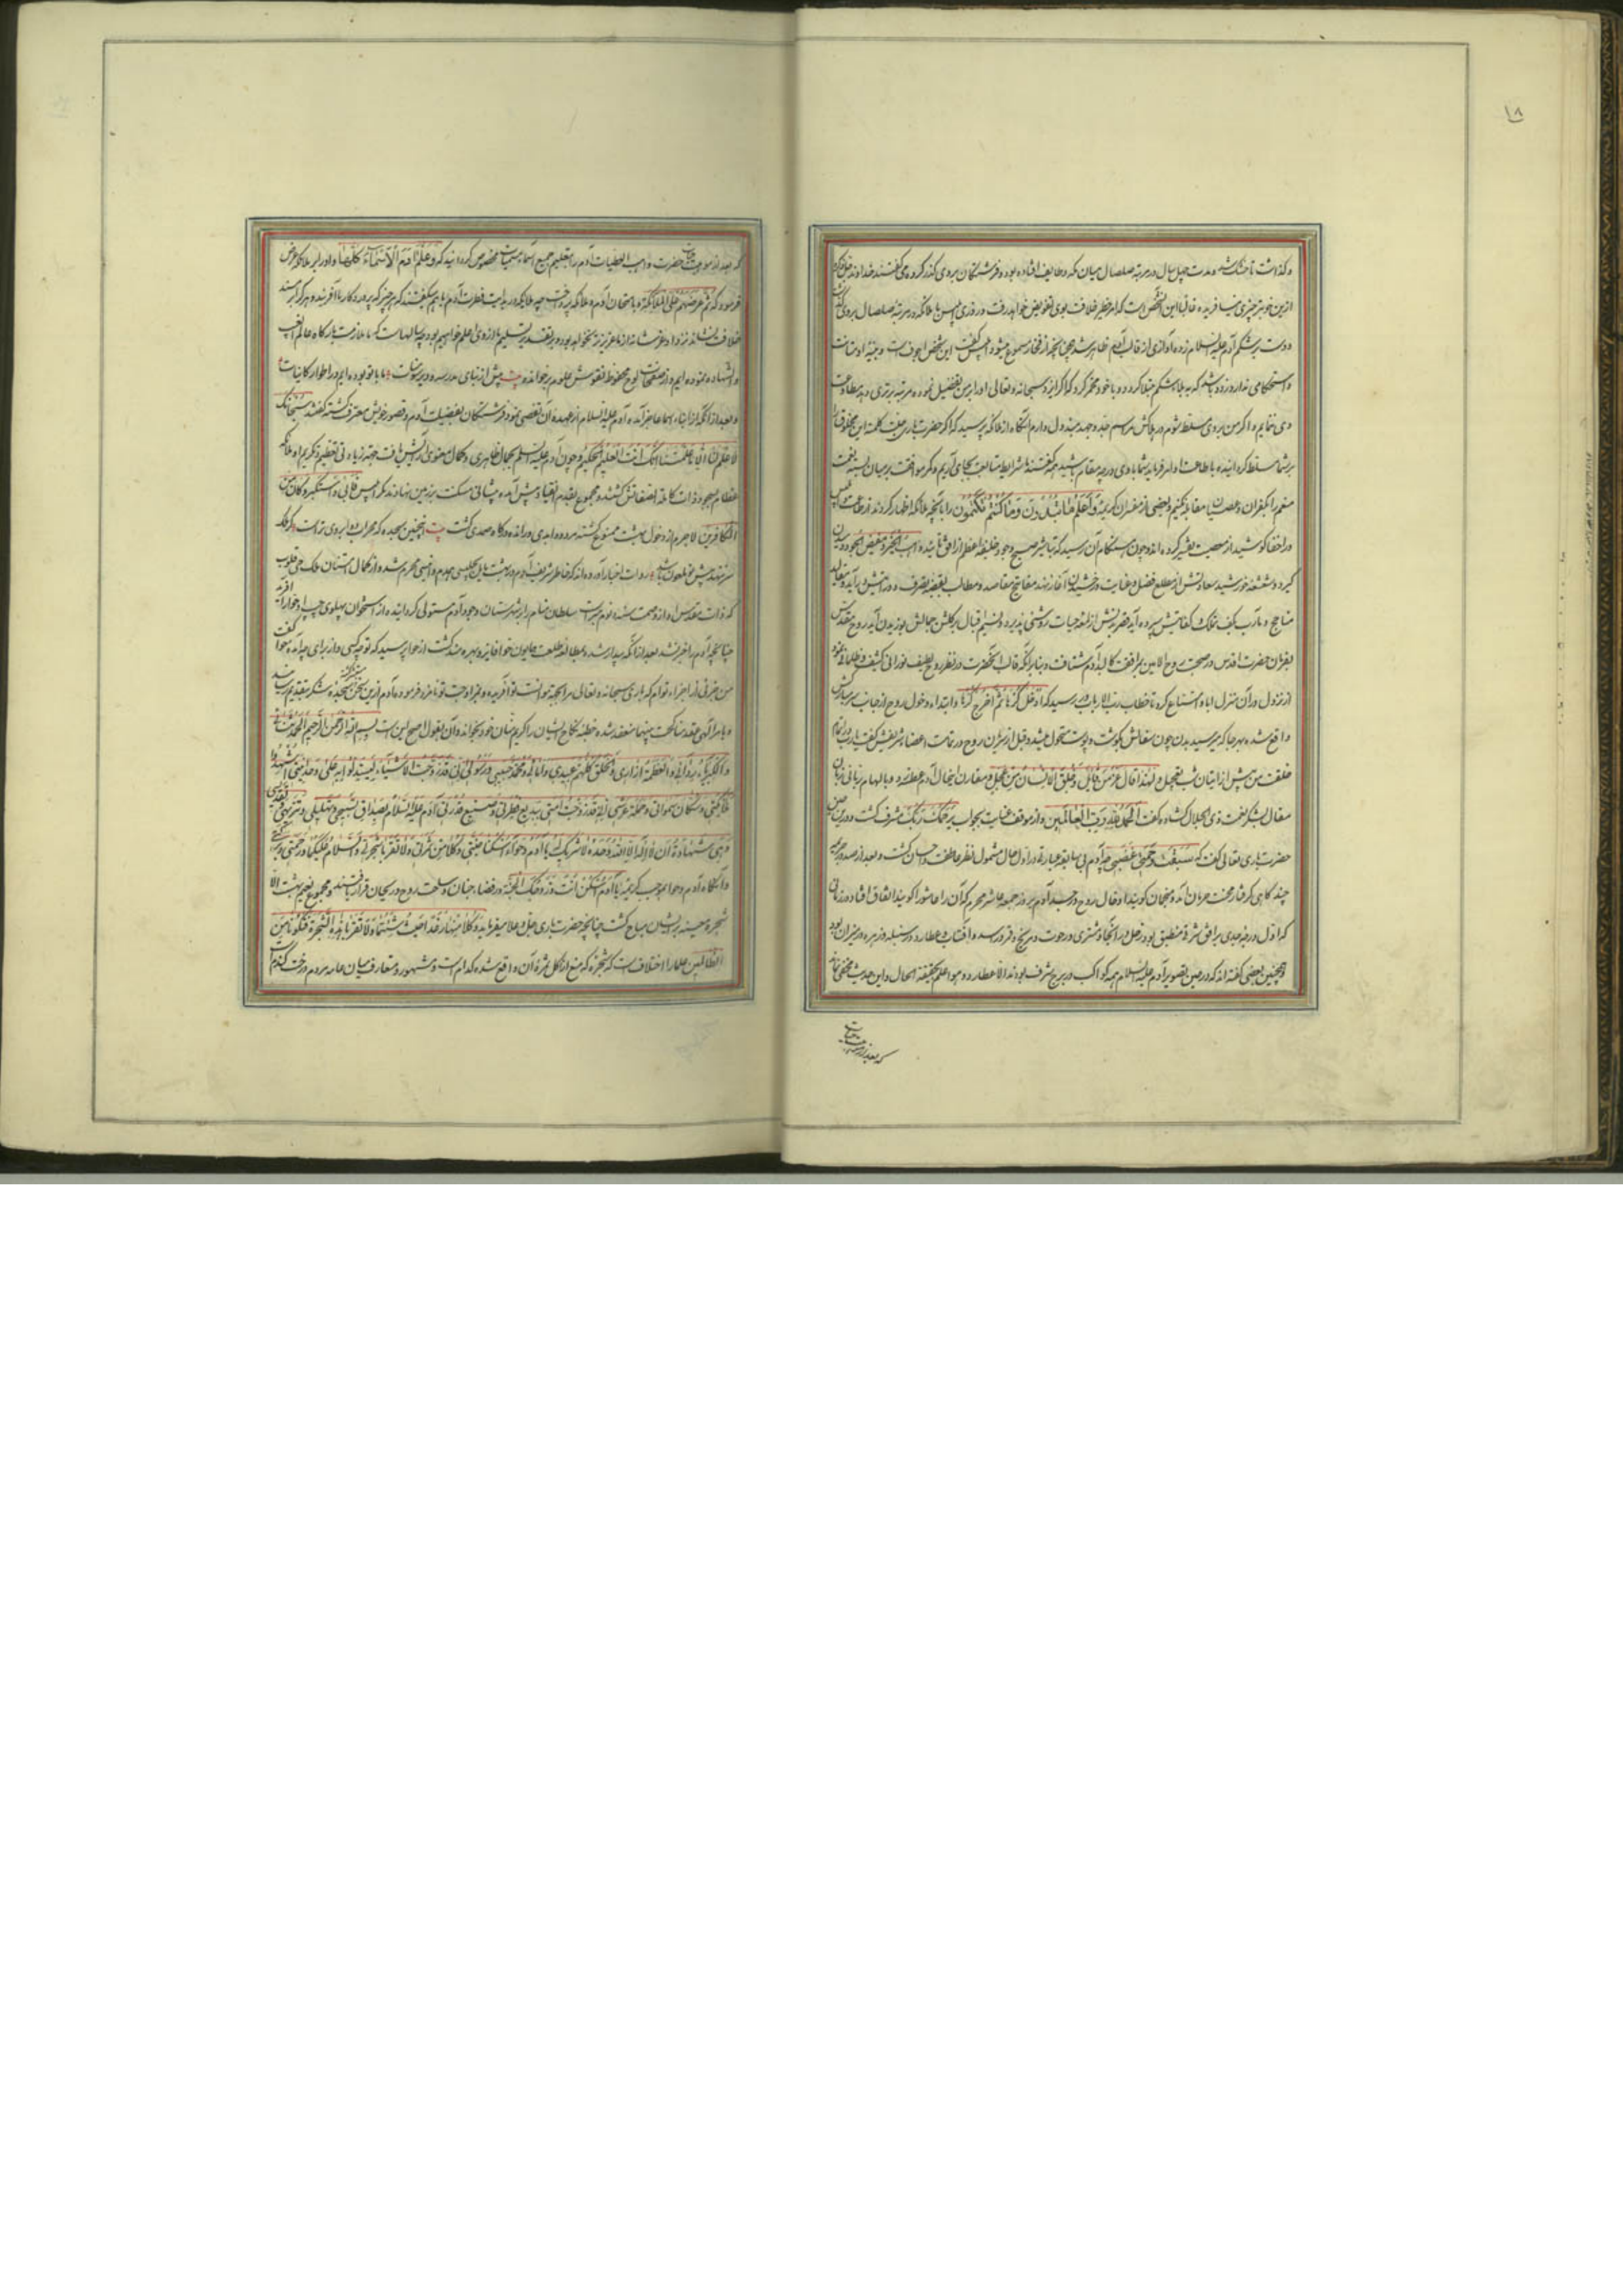 ۱۸
و گذاشت تا خشک شد و مدت چهل سال در مرتبه صلصال میان مکه و طایف افتاده بود و فرشتگان بروی گذر کرده می گفتند خداوند
ازین خوبتر چیزی نیافریده غالبا این شخص است که امر خطیر خلافت بوی تفویض خواهد رفت و روزی ابلیس با ملائکه در مرتبه صلصال بروی
دست بر شکم آدم علیه السلام زده آوازی از قالب آدم ظاهر شد چنانچه از فخار مسموع میشود ابلیس گفت این شخص اجوفست و بنیه او متانت
و استحکامی ندارد زود باشد که به بلای شکم مبتلا گردد و با خود مخمر کرد که اگر ایزد سبحانه و تعالی او را بر من تفضیل نموده مرتبه برتری دهد مطاوعت
وی ننمایم و اگر من بروی مسلط شوم در هلاکش مراسم جد و جهد مبذول دارم آنگاه از ملائکه پرسید که اگر حضرت باری جلت کلمته این مخلوق را
بر شما مسلط گردانیده باطاعت او امر فرماید شما با وی در چه مقام باشید همه گفتند شرایط متابعت بجای آریم و کمر موافقت بر میان بسته نعمت
منعم را بکفران و عصیان مقابله نکنیم و بعضی از مفسران کریمه و اعلم ما تبدون و ما کنتم تکتمون را بآنچه ملائکه اظهار کردند از طاعت و ابلیس
در اخفا کوشید از معصیت تفسیر کرده اند و چون هنگام آن رسید که تباشیر صبح وجود خلیفه اعظم از افق
گیرد و شعشعه خورشید سعادتش از مطلع فضل و عنایت درخشیدن آغاز نهد مفاتیح مقاصد و مطالب بقبضه تصرف و درایتش درآید و مقالید
مناجح و مآرب بکف تملک و کفایتش سپرده آید قصر بدنش از لمعه حیات روشنی پذیرد و نسیم اقبال بر گلشن جمالش بوزیدن آید روح مقدس
بفرمان حضرت اقدس در صحبت روح الامین بمرافقت کالبد آدم شتافت و بنابر آنکه قالب آنحضرت در نظر روح لطیف نورانی کثیف و ظلمانی نمود
از نزول در آن منزل ابا و امتناع کرد تا خطاب رب الارباب در رسید که ادخل کرها ثم اخرج کرها و ابتداء دخول روح از جانب سر مبارکش
واقع شده بهر جا که میرسید بدن چون سفالش بگوشت و پوست متحول میشد و قبل از سریان روح در تمامت اعضاء شریفش گفت یارب
خلقت من پیش از اتیان شب تعجیل و لهذا قال عز من قایل و خلق الانسان من عجل و مقارن اینحال آدم عطسه زد و بالهام ربانی زبان
مقال بشکر نعمت ذی الجلال گشاده گفت الحمد لله رب العالمین و از موقف عنایت بجواب یرحمک ربک مشرف گشت و درین حین
حضرت باری تعالی گفت که سبقت رحمتی غضبی چه آدم بی سابقه عبارة در اول حال مشمول نظر عاطفت و احسان گشت و بعد از صدور جریمه
چند گاهی گرفتار محنت حرمان آمد و منجمان گویند ادخال روح در جسد آدم بروز جمعه عاشر محرم که آن را عاشورا گویند اتفاق افتاد و در زمانی
که اول درجه جدی بر افق شرقی منطبق بود و زحل در آنجا و مشتری در حوت و مریخ و قمر در اسد و آفتاب و عطارد در سنبله و زهره در میزان بود
و همچنین بعضی گفته اند که در حین تصویر آدم علیه السلام همه کواکب در برج شرف بودند الا عطارد و هو اعلم بحقیقة الحال و این حدیث مخفی نماند
که بعد از موهبت حیات
که بعد از موهبت حیات حضرت واهب العطیات آدم را بتعلیم جمیع اسماء مسمیات مخصوص گردانید که و علم آدم الاسماء کلها و او را بر ملائکه عرض
فرمود که ثم عرضهم علی الملائکة و بامتحان آدم و ملائکه پرداخت چه ملائکه در بدایت فطرت آدم با هم میگفتند که هر چیز که پروردگار ما آفریند و هر کرا بر مسند
خلافت نشاند نزد او عز شانه از ما عزیزتر نخواهد بود و بر تقدیر تسلیم ما از وی اعلم خواهیم بود چه سالهاست که ملازمت بارگاه عالم الغیب
و الشهاده نموده ایم و از صفحات لوح محفوظ نقوش علوم بر خوانده بیت پیش از بنای مدرسه و دیر سومنات ما با تو بوده ایم در اطوار کاینات
و بعد از آنکه از انباء اسما عاجز آمدند آدم علیه السلام از عهده آن تفصی نمود فرشتگان بفضیلت آدم و قصور خویش معترف گشته گفتند سبحانک
لا علم لنا الا ما علمتنا انک انت العلیم الحکیم و چون آدم علیه السلام بجمال ظاهری و کمال معنوی آرایش یافت جهة زیادتی تعظیم و تکریم او ملائکه
عظام بسجود ذات کامله الصفاتش گشتند و مجموع بقدم انقیاد پیش آمده پیشانی مسکنت بر زمین نهادند مگر ابلیس فابی و استکبر و کان من
الکافرین لا جرم از دخول بهشت ممنوع گشته مردود ابدی و رانده درگاه صمدی گشت بیت اینچنین سجده که محراب دو ابروی تراست گر ملک
سر ننهد پیش تو ملعون باشد روات اخبار آورده اند که خاطر شریف آدم در بهشت مایل بجلیسی همدم و انیسی محرم شده از کمال امتنان ملک حی قلوب
که ذات مقدس او از وصمت سنه و نوم مبراست سلطان منام را بر شهرستان وجود آدم مستولی گردانیده از استخوان پهلوی چپ او حوا را آفرید
چنانچه آدم را خبر نشد بعد از آنکه بیدار شد و بمطالعه طلعت همایون حوا فایز و بهره مند گشت از حوا پرسید که تو چه کسی و از برای چه آمده حوا گفت
من جزئی از اجزاء توام که باری سبحانه و تعالی مرا بجهة موانست تو آفریده و بمزاوجت تو نامزد فرموده آدم ازین سخن سجده شکر بتقدیم رسانید
و بامر الهی عقد مناکحت بینهما منعقد شده خطبه نکاح ایشان را کریم منان خود بخواند و آن بقول اصح این است بسم الله الرحمن الرحیم الحمد ثنائی
و الکبریاء ردائی و العظمة ازاری و الخلق کلهم عبیدی و امائی و محمد حبیبی و رسولی انی قدر زوجت الاشیاء لیستدلوا به علی وحدانیتی اشهدوا
ملائکتی و سکان سمواتی و حملة عرشی انی قد زوجت امتی ببدیع فطرتی و صنیع قدرتی آدم علیه السلام بصداق تسبیحی و تهلیلی و تنزیهی و تقدیسی
و هی شهادة ان لا اله الا الله وحده لا شریک له یا آدم و حواء اسکنا جنتی و کلا من ثمراتی و لا تقربا شجرتی و السلام علیکما و رحمتی و برکتی
و آنگاه آدم و حوا بموجب کریمه یا آدم اسکن انت و زوجک الجنة در فضاء جنان و ساحت روح و ریحان قرار یافتند و مجموع نعیم بهشت الا
شجره معینه بر ایشان مباح گشت چنانچه حضرت باری جل و علا میفرماید و کلا منها رغدا حیث شئتما و لا تقربا هذه الشجرة فتکونا من
الظالمین علما را اختلاف است که شجره که منع از اکل ثمره آن واقع شده کدام است و مشهور و متعارف میان عامه مردم درخت گندم است